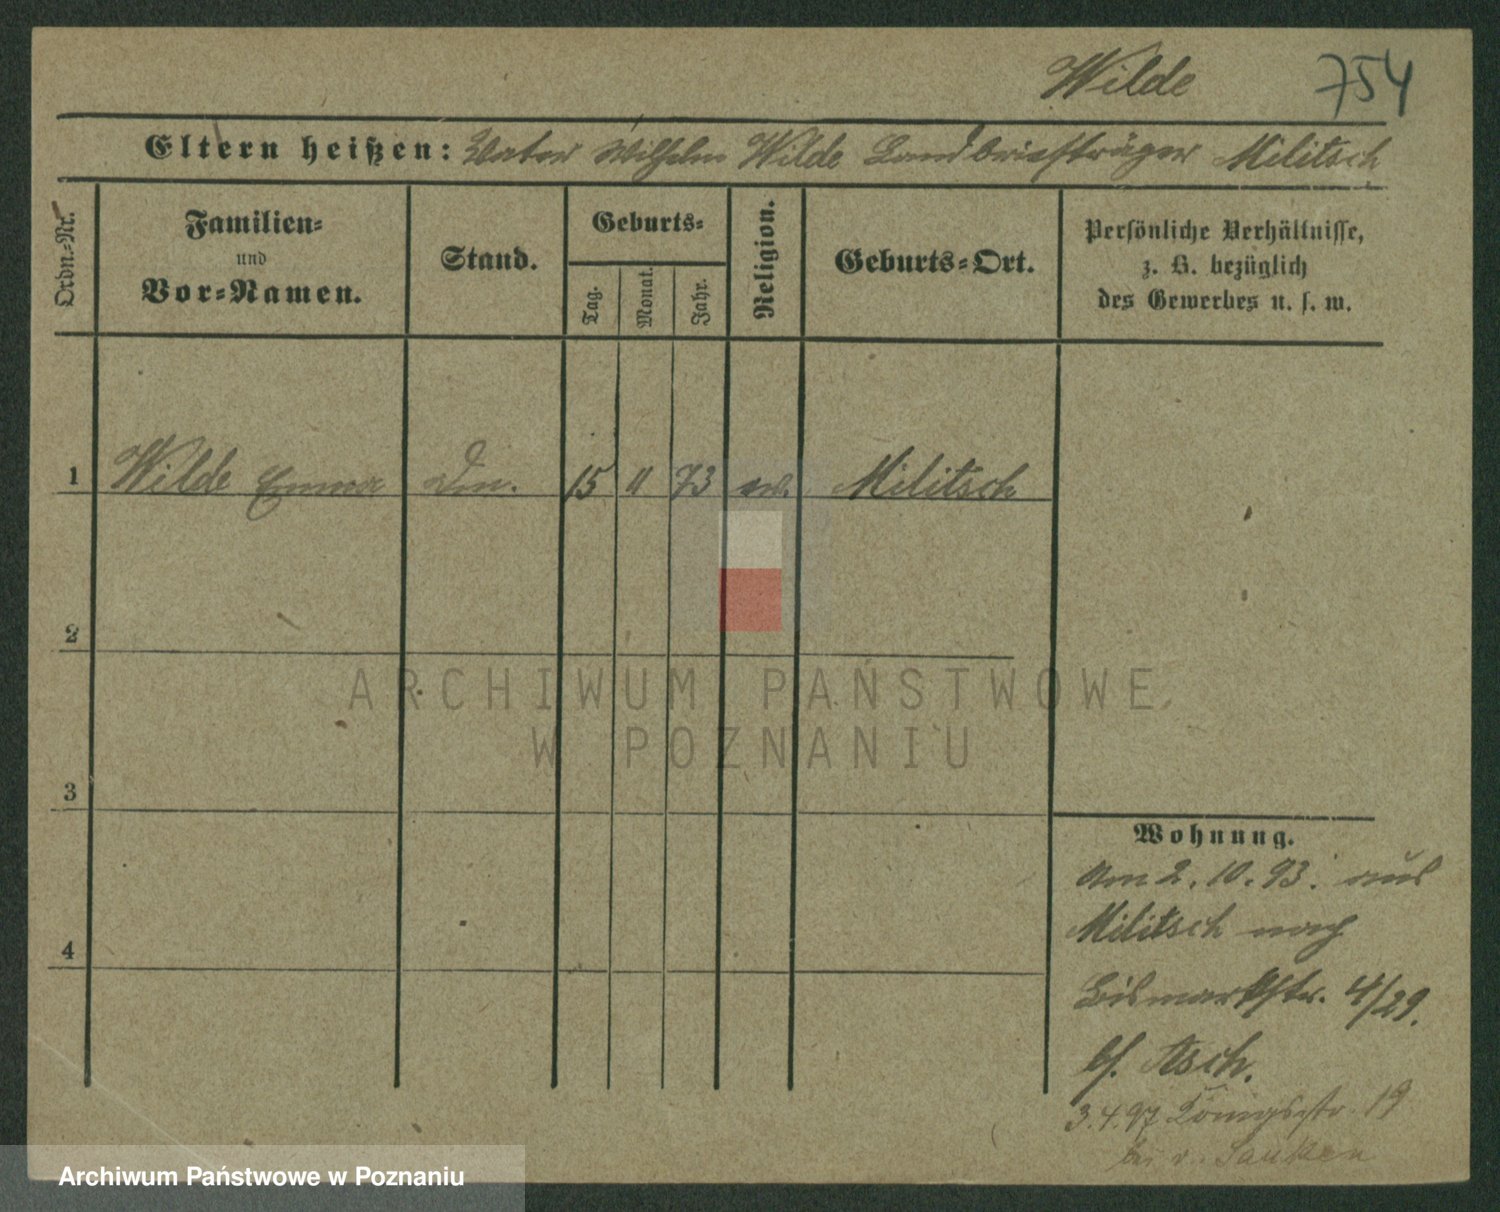 Wilde 754
Eltern heißen: Vater Wilhelm Wilde Landbriefträger Militsch
Ordn.-Nr.
Familien-
und
Vor-Namen.
Stand.
Geburts-
Tag.
Monat.
Jahr.
Religion.
Geburts-Ort.
Persönliche Verhältnisse,
z. B. bezüglich
des Gewerbes u. s. w.
1 Wilde Emma 15 73 Militsch
2
3
4
ARCHIWUM PAŃSTWOWE
W POZNANIU
Wohnung.
Am 2. 10. 93. aus
Militsch nach
Bismarkstr. 4/29.
bf. Asch.
3.4.97 Königsstr. 19
bei v.
Archiwum Państwowe w Poznaniu